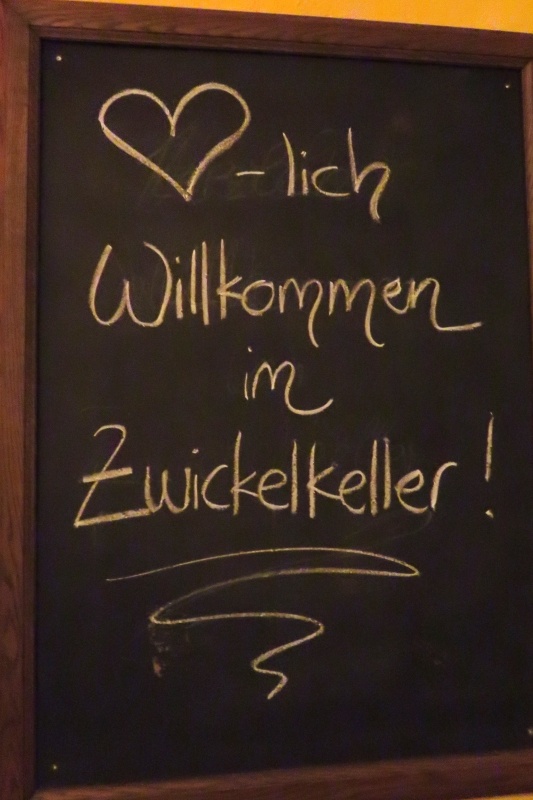 ♡-lich
Willkommen
im
Zwickelkeller!